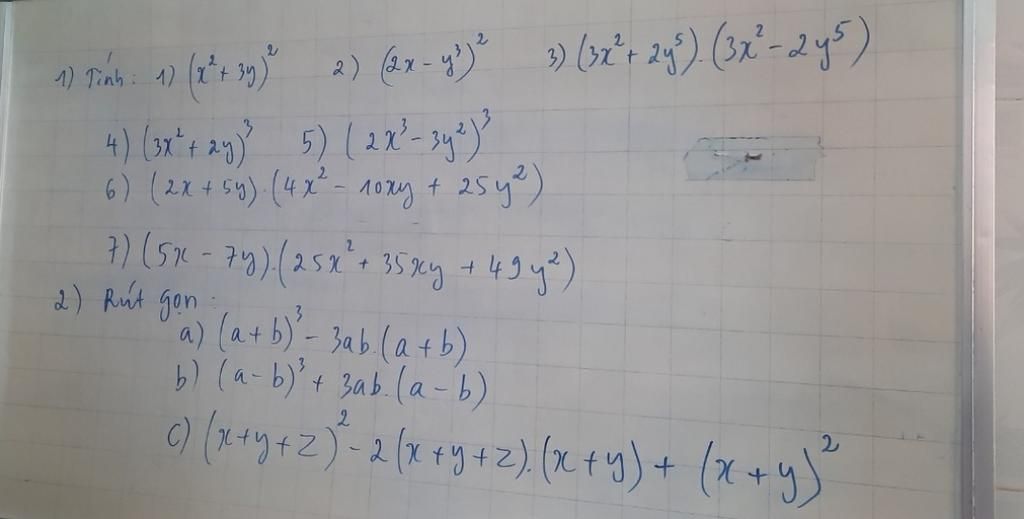 1) Tính: 1) (x² + 3y)² 2) (2x - y³)² 3) (3x² + 2y⁵).(3x² - 2y⁵)
4) (3x² + 2y)³ 5) (2x³ - 3y²)³
6) (2x + 5y).(4x² - 10xy + 25y²)
7) (5x - 7y).(25x² + 35xy + 49y²)
2) Rút gọn:
a) (a + b)³ - 3ab.(a + b)
b) (a - b)³ + 3ab.(a - b)
c) (x + y + z)² - 2(x + y + z).(x + y) + (x + y)²